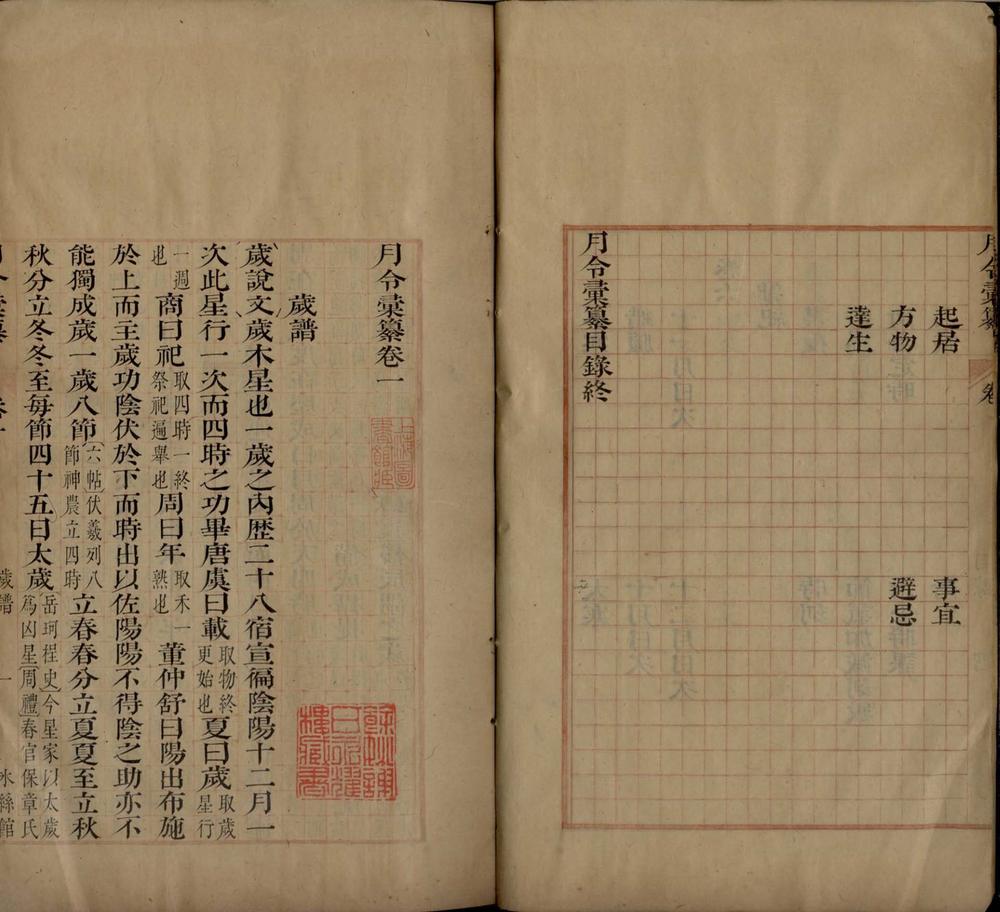 月令彚纂
起居
事宜
方物
避忌
達生
月令彚纂目錄終
月令彚纂卷一
歲譜
歲說文歲木星也一歲之內歷二十八宿宣徧陰陽十二月一
次此星行一次而四時之功畢唐虞曰載取物終更始也夏曰歲取歲星行
一週也商曰祀取四時一終祭祀遍舉也周曰年取禾一熟也董仲舒曰陽出布施
於上而主歲功陰伏於下而時出以佐陽陽不得陰之助亦不
能獨成歲一歲八節六帖伏羲列八節神農立四時立春春分立夏夏至立秋
秋分立冬冬至每節四十五日太歲岳珂桯史今星家以太歲爲凶星周禮春官保章氏
歲譜
一